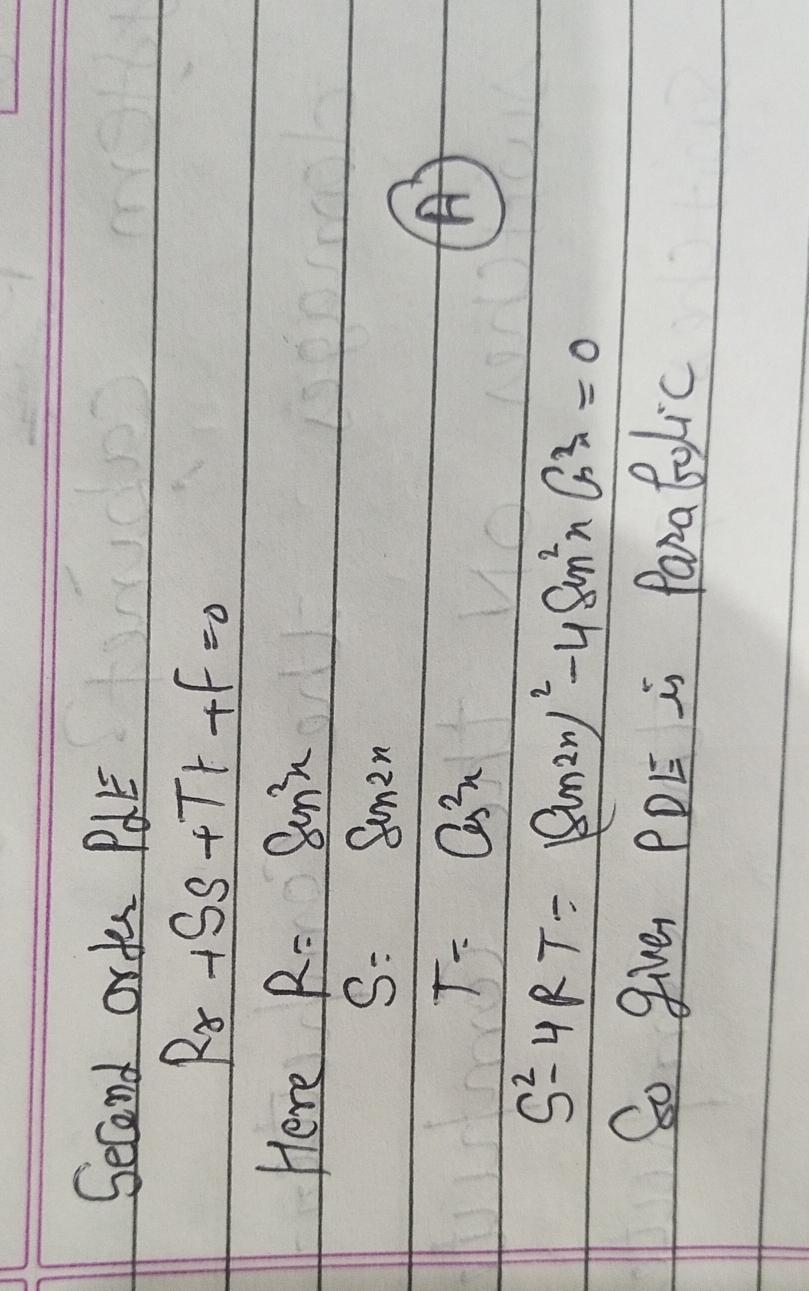 Second order PdE
Rr + SS + Tt + f = 0
Here R = Sin²x
S = Sin2x
T = Cos²x
A
S² - 4RT = (Sin2x)² - 4 Sin²x Cos²x = 0
So given PDE is Parabolic